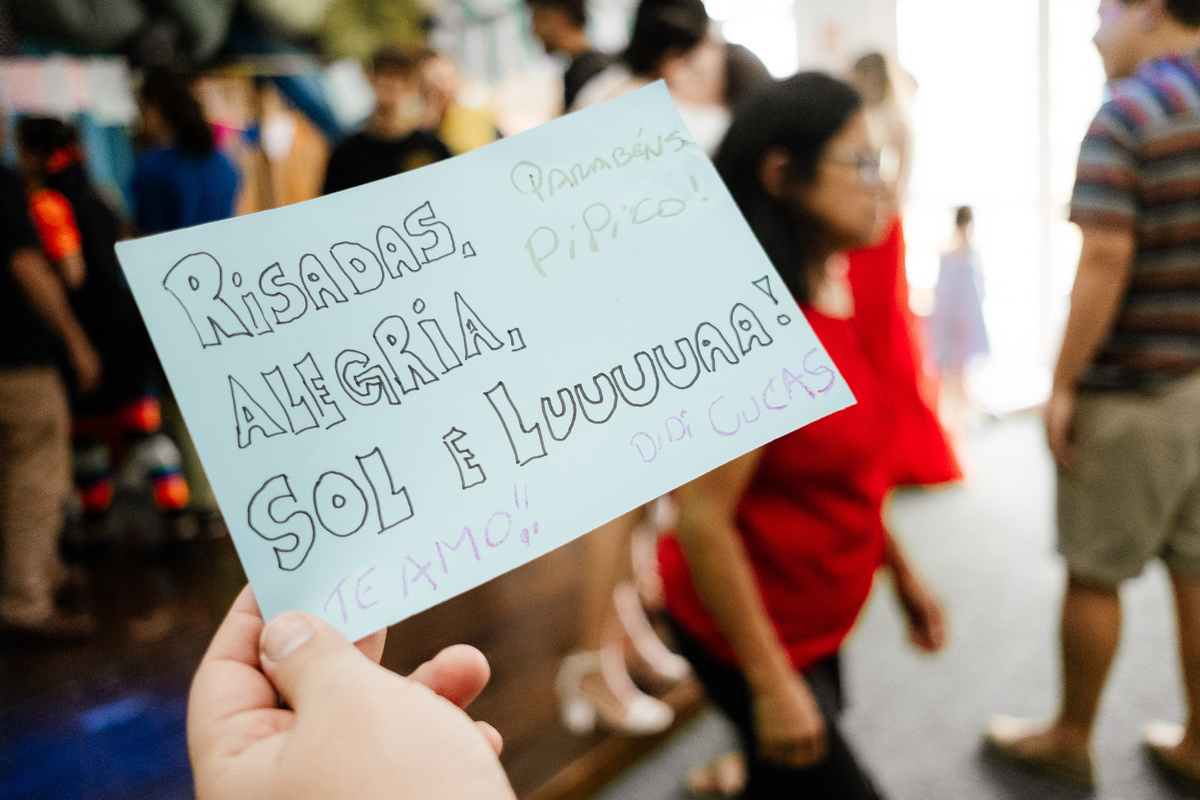 PARABÉNS
PiPiCO!
RiSADAS,
ALEGRiA,
SOL E LUUUUAA!
DiDi CUCAS
TE AMO!!